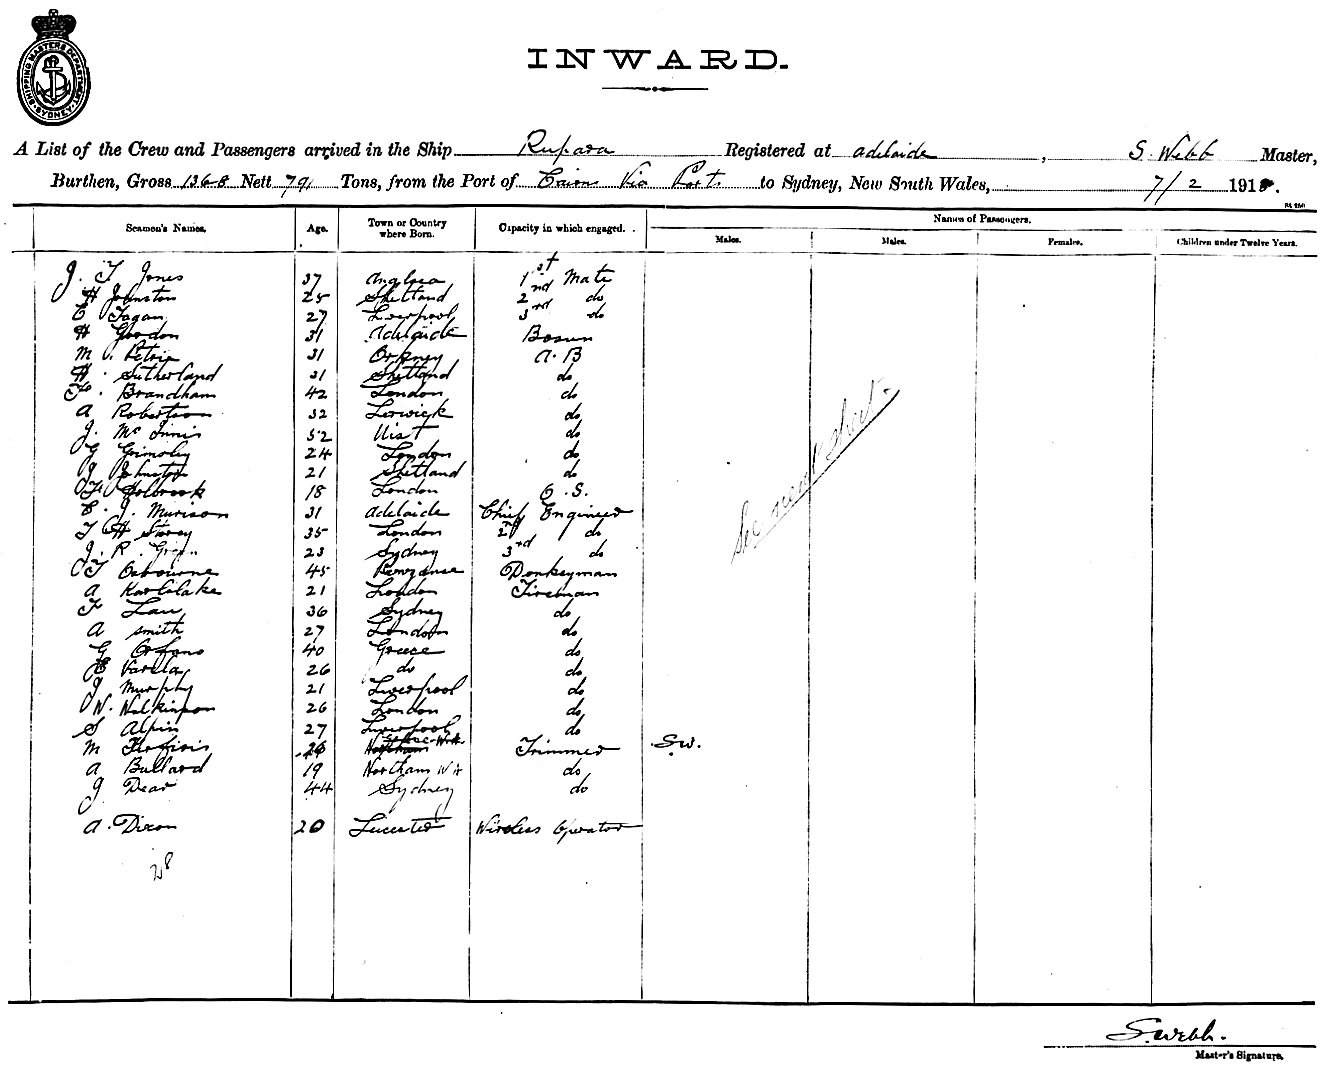 SHIPPING MASTERS DEPARTMENT SYDNEY
INWARD.
A List of the Crew and Passengers arrived in the Ship Rupara Registered at adelaide, S. Webb Master,
Burthen, Gross 1368 Nett 791 Tons, from the Port of Via Ports to Sydney, New South Wales, 7/2 191.
Seamen's Names. Age. Town or Country where Born. Capacity in which engaged. Names of Passengers.
Males. Males. Females. Children under Twelve Years.
J. T Jones 37 1st Mate
H Johnston 25 Shetland 2nd do
E Fagan 27 Liverpool 3rd do
H Gordon 31 Adelaide Bosun
M Petrie 31 Orkney A.B
H. Sutherland 31 Shetland do
F. Brandham 42 London do
A Robertson 32 Lerwick do
J. Mc Innis 52 Uist do
G Grimsley 24 London do
J Johnston 21 Shetland do
F Holbrook 18 London O.S.
E. J. Murison 31 adelaide Chief Engineer
T H Storey 35 London 2nd do
J. R. 23 Sydney 3rd do
T Osbourne 45 Penzance Donkeyman
A Karlslake 21 London Fireman
F Law 36 Sydney do
A Smith 27 London do
G Orfano 40 Greece do
E Varela 26 do do
J Murphy 21 Liverpool do
W. Wilkinson 26 London do
S Alpin 27 Liverpool do
M 26 Trimmer S.W.
A Bullard 19 Northam W A do
J Dear 44 Sydney do
A. Dixon 20 Leicester Wireless Operator
28
See next sheet
S. Webb.
Master's Signature.